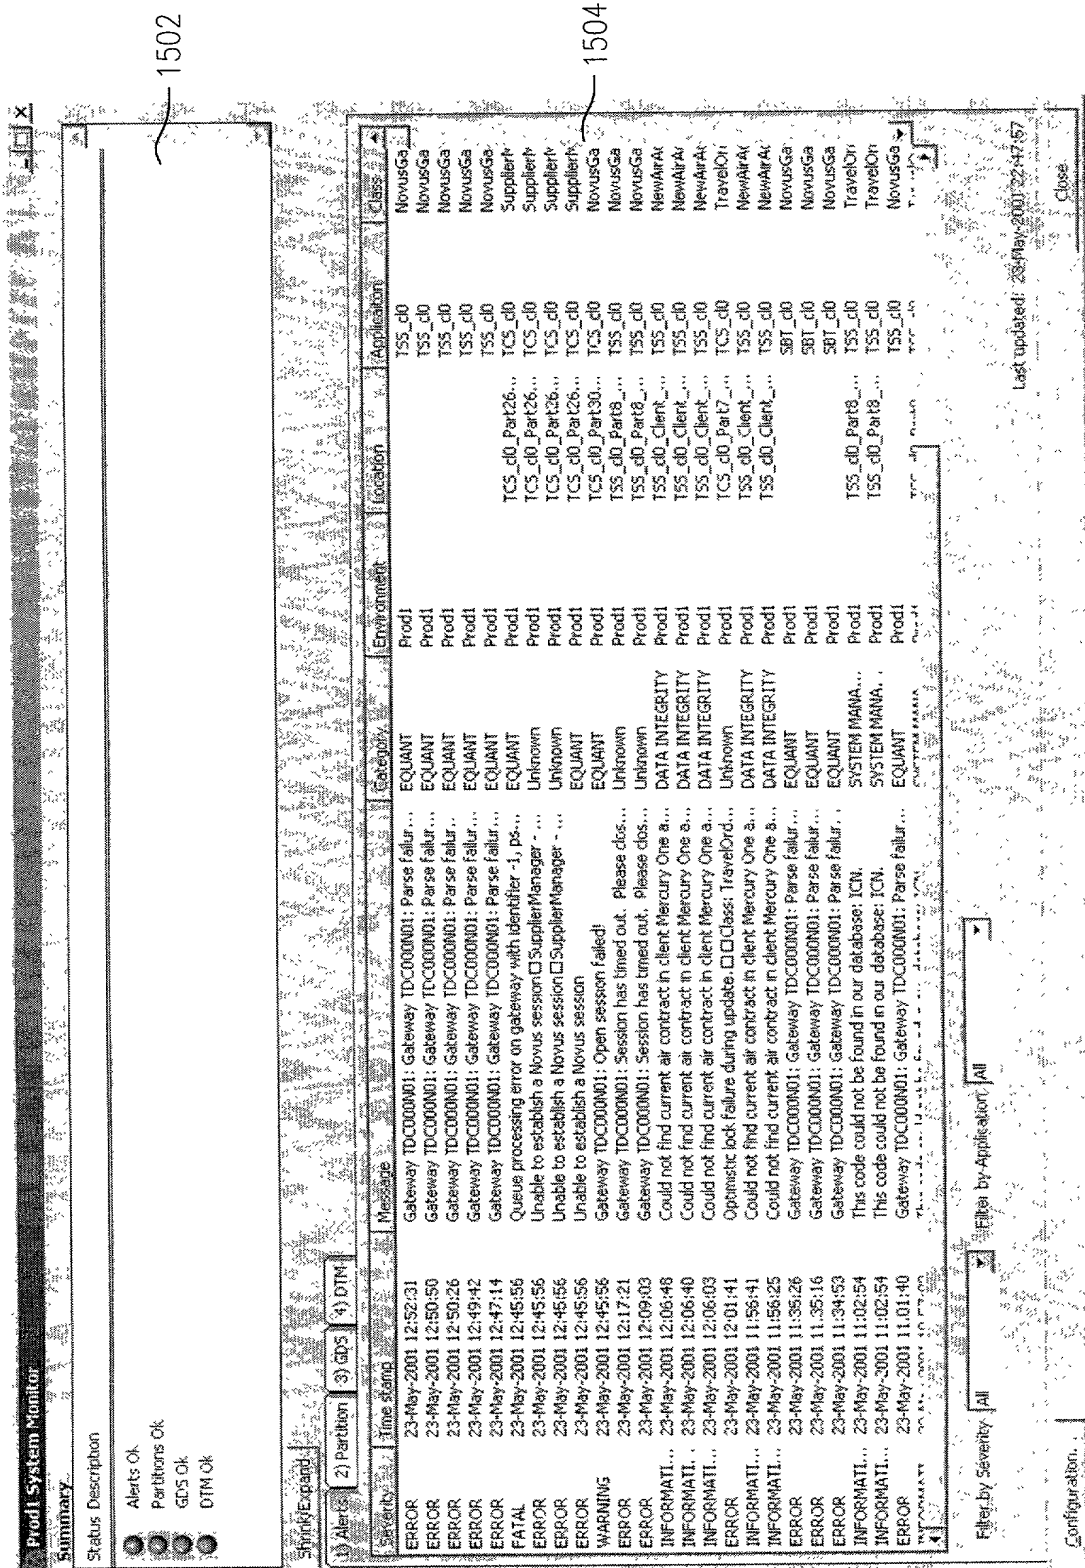 Prod1 System Monitor
Summary
Status Description
Alerts Ok
Partitions Ok
GDS Ok
DTM Ok
1502
Shrink/Expand
1) Alerts 2) Partition 3) GDS 4) DTM
Severity Time stamp Message Category Environment Location Application Class
ERROR 23-May-2001 12:52:31 Gateway TDC000N01: Parse failur... EQUANT Prod1 TSS_cl0 NovusGa
ERROR 23-May-2001 12:50:50 Gateway TDC000N01: Gateway TDC000N01: Parse failur... EQUANT Prod1 TSS_cl0 NovusGa
ERROR 23-May-2001 12:50:26 Gateway TDC000N01: Gateway TDC000N01: Parse failur.. EQUANT Prod1 TSS_cl0 NovusGa
ERROR 23-May-2001 12:49:42 Gateway TDC000N01: Gateway TDC000N01: Parse failur... EQUANT Prod1 TSS_cl0 NovusGa
ERROR 23-May-2001 12:47:14 Gateway TDC000N01: Gateway TDC000N01: Parse failur... EQUANT Prod1 TSS_cl0 NovusGa
FATAL 23-May-2001 12:45:56 Queue processing error on gateway with identifier -1, ps-... EQUANT Prod1 TCS_cl0_Part26... TCS_cl0 SupplierM
ERROR 23-May-2001 12:45:56 Unable to establish a Novus session□SupplierManager - ... Unknown Prod1 TCS_cl0_Part26... TCS_cl0 SupplierM
ERROR 23-May-2001 12:45:56 Unable to establish a Novus session□SupplierManager - ... Unknown Prod1 TCS_cl0_Part26... TCS_cl0 SupplierM
ERROR 23-May-2001 12:45:56 Unable to establish a Novus session EQUANT Prod1 TCS_cl0_Part26... TCS_cl0 SupplierM
WARNING 23-May-2001 12:45:56 Gateway TDC000N01: Open session failed! EQUANT Prod1 TCS_cl0_Part30... TCS_cl0 NovusGa
ERROR 23-May-2001 12:17:21 Gateway TDC000N01: Session has timed out. Please clos... Unknown Prod1 TSS_cl0_Part8_... TSS_cl0 NovusGa
ERROR 23-May-2001 12:09:03 Gateway TDC000N01: Session has timed out. Please clos... Unknown Prod1 TSS_cl0_Part8_... TSS_cl0 NovusGa
INFORMATI... 23-May-2001 12:06:48 Could not find current air contract in client Mercury One a... DATA INTEGRITY Prod1 TSS_cl0_Client_... TSS_cl0 NewAirAc
INFORMATI. . 23-May-2001 12:06:40 Could not find current air contract in client Mercury One a... DATA INTEGRITY Prod1 TSS_cl0_Client_... TSS_cl0 NewAirAc
INFORMATI... 23-May-2001 12:06:03 Could not find current air contract in client Mercury One a... DATA INTEGRITY Prod1 TSS_cl0_Client_... TSS_cl0 NewAirAc
ERROR 23-May-2001 12:01:41 Optimistic lock failure during update.□□Class: TravelOrd... Unknown Prod1 TCS_cl0_Part7_... TCS_cl0 TravelOr
INFORMATI... 23-May-2001 11:56:41 Could not find current air contract in client Mercury One a... DATA INTEGRITY Prod1 TSS_cl0_Client_... TSS_cl0 NewAirAc
INFORMATI... 23-May-2001 11:56:25 Could not find current air contract in client Mercury One a... DATA INTEGRITY Prod1 TSS_cl0_Client_... TSS_cl0 NewAirAc
ERROR 23-May-2001 11:35:26 Gateway TDC000N01: Gateway TDC000N01: Parse failur... EQUANT Prod1 SBT_cl0 NovusGa
ERROR 23-May-2001 11:35:16 Gateway TDC000N01: Gateway TDC000N01: Parse failur... EQUANT Prod1 SBT_cl0 NovusGa
ERROR 23-May-2001 11:34:53 Gateway TDC000N01: Gateway TDC000N01: Parse failur... EQUANT Prod1 SBT_cl0 NovusGa
INFORMATI... 23-May-2001 11:02:54 This code could not be found in our database: ICN. SYSTEM MANA... Prod1 TSS_cl0_Part8_... TSS_cl0 TravelOr
INFORMATI... 23-May-2001 11:02:54 This code could not be found in our database: ICN. SYSTEM MANA. . Prod1 TSS_cl0_Part8_... TSS_cl0 TravelOr
ERROR 23-May-2001 11:01:40 Gateway TDC000N01: Gateway TDC000N01: Parse failur... EQUANT Prod1 TSS_cl0 NovusGa
1504
Filter by Severity All Filter by Application All
Last updated: 23-May-2001
Configuration... Close